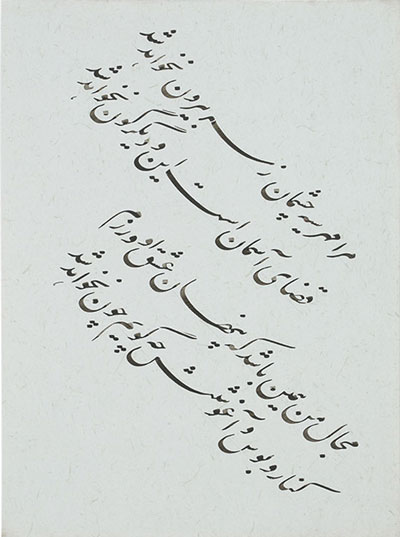 مرا مهر سیه چشمان ز سر بیرون نخواهد شد
قضای آسمان است این و دیگرگون نخواهد شد
مجال من همین باشد که پنهان عشق او ورزم
کنار و بوس و آغوشش چه گویم چون نخواهد شد